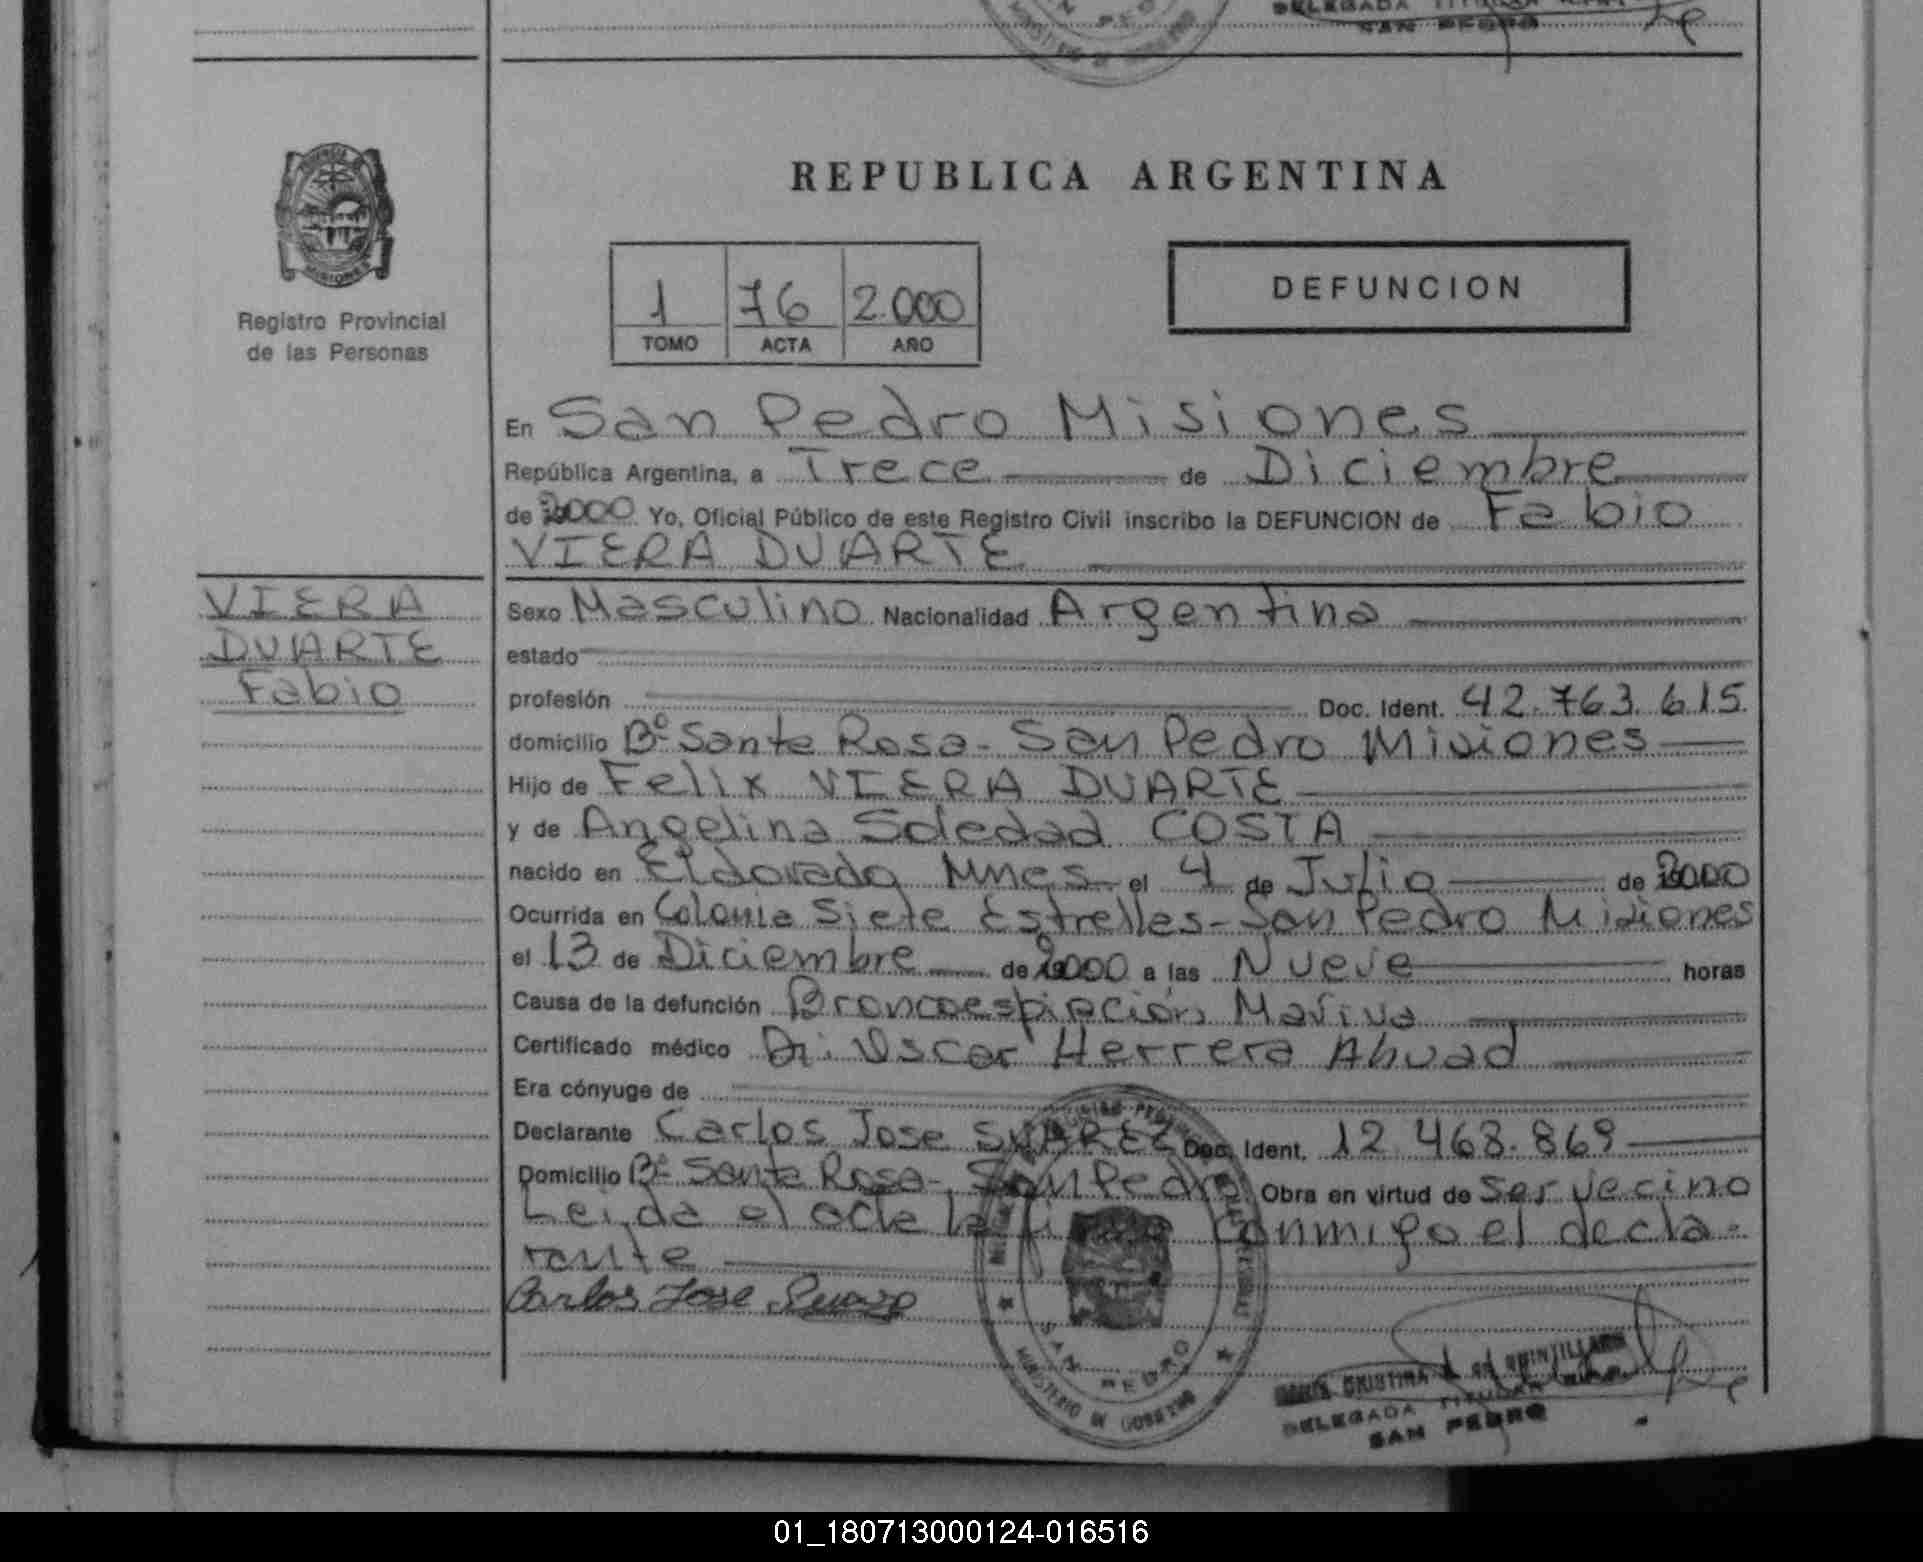 DELEGADA TITULAR
SAN PEDRO
REPUBLICA ARGENTINA
MISIONES
Registro Provincial
de las Personas
1 76 2.000
TOMO ACTA AÑO
DEFUNCION
En San Pedro Misiones
República Argentina, a Trece de Diciembre
de 2000 Yo, Oficial Público de este Registro Civil inscribo la DEFUNCION de Fabio
VIERA DUARTE
VIERA
DUARTE
Fabio
Sexo Masculino Nacionalidad Argentina
estado
profesión Doc. Ident. 42.763.615
domicilio Bº Santa Rosa - San Pedro Misiones
Hijo de Felix VIERA DUARTE
y de Angelina Soledad COSTA
nacido en Eldorado Mnes el 4 de Julio de 2000
Ocurrida en Colonia Siete Estrelles - San Pedro Misiones
el 13 de Diciembre de 2000 a las Nueve horas
Causa de la defunción Broncoespiración Masiva
Certificado médico Dr. Oscar Herrera Ahuad
Era cónyuge de
Declarante Carlos Jose SUAREZ Doc. Ident. 12.468.869
Domicilio Bº Santa Rosa - San Pedro Obra en virtud de ser vecino
Leida el acta la firma conmigo el decla-
rante
Carlos Jose Suarez
SAN PEDRO
MINISTERIO DE GOBIERNO
CRISTINA DE QUINTILLAN
DELEGADA TITULAR
SAN PEDRO
01_180713000124-016516